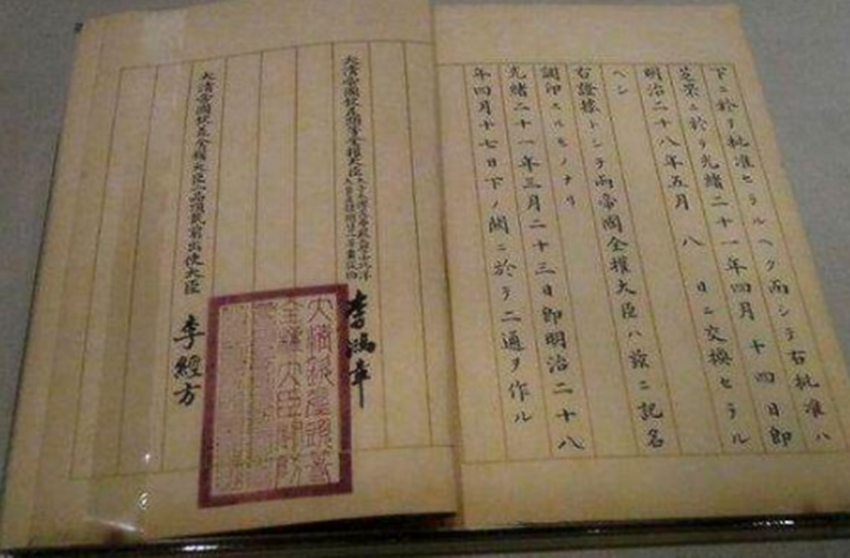 下ニ於テ批准セラルヘク而シテ右批准ハ
芝罘ニ於テ光緒二十一年四月十四日即
明治二十八年五月八日ニ交換セラル
ヘシ
右證據トシテ兩帝國全權大臣ハ茲ニ記名
調印スルモノナリ
光緒二十一年三月二十三日即明治二十八
年四月十七日下ノ關ニ於テ二通ヲ作ル
大清帝國欽差頭等全權大臣
李鴻章
大清帝國欽差全權大臣二品頂戴前出使大臣 李經方
大清欽差頭等
全權大臣關防